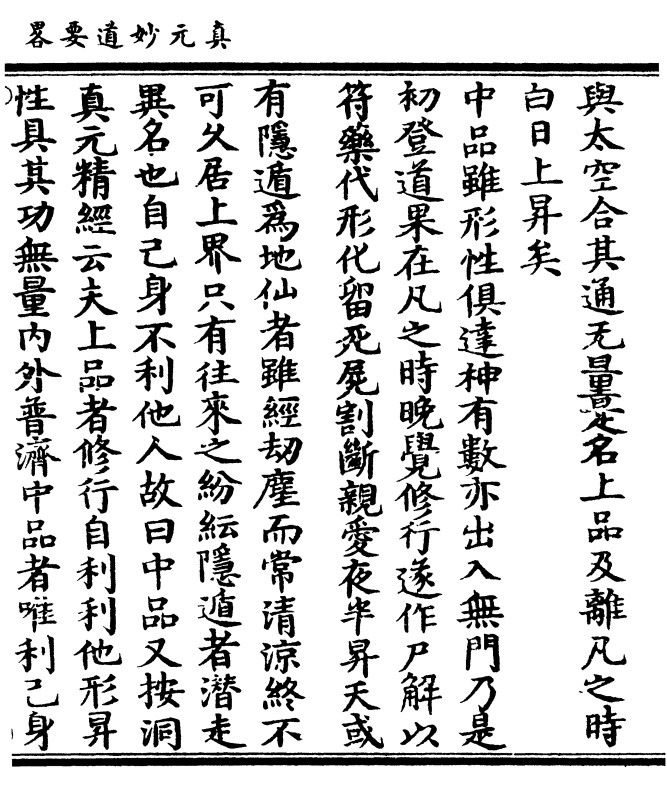 真元妙道要畧
與太空合其通无量㝎名上品及離凡之時
白日上昇矣
中品雖形性俱達神有數亦出入無門乃是
初登道果在凡之時晩覺修行遂作尸解以
符藥代形化留死屍割斷親愛夜半昇天或
有隱遁爲地仙者雖經劫塵而常清涼終不
可久居上界只有往來之紛紜隱遁者潛走
異名也自己身不利他人故曰中品又按洞
真元精經云夫上品者修行自利利他形昇
性具其功無量內外普濟中品者唯利己身